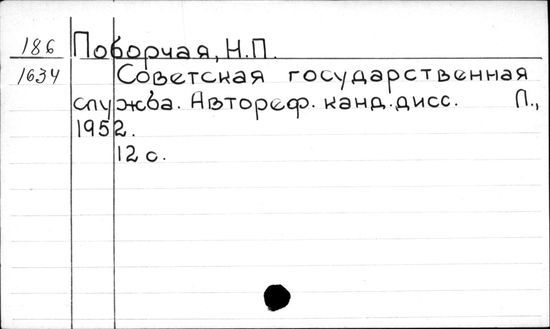 186 Поборчая, Н.П.
1634 Советская государственная
служба. Автореф. канд. дисс. Л.,
1952.
12 с.